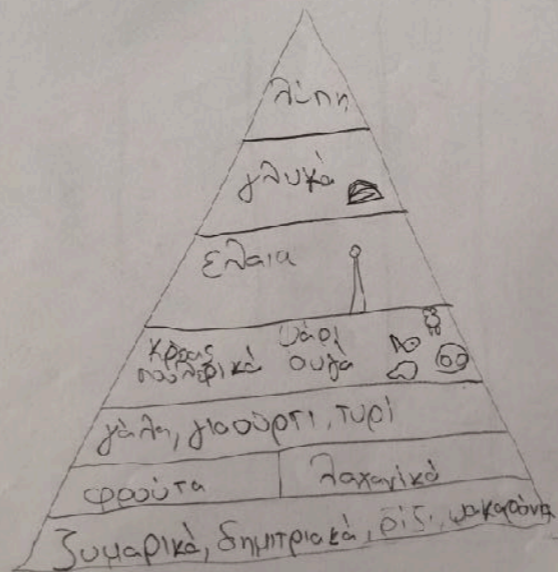 λύπη
γλυκά
έλαια
κρέας ψάρι
πουλερικά αυγά
γάλα, γιαούρτι, τυρί
φρούτα λαχανικά
ζυμαρικά, δημητριακά, ρύζι, μακαρόνια